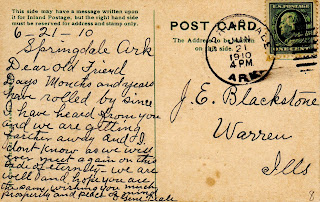 This side may have a message written upon
it for Inland Postage, but the right hand side
must be reserved for address and stamp only.
6-21-10
Springdale Ark
Dear Old Friend
Days Months and years
have rolled by Since
I have heard from you
and we are getting
farther away and I
dont know as we will
ever meet again on this
side of eternity - we are
well and hope you are
the same, wishing you much
prosperity and peace of mind
POST CARD
The Address to be
on this side.
JUN
21
4 PM
1910
ARK.
U.S. POSTAGE
ONE CENT
J. E. Blackstone
Warren
Ills
8